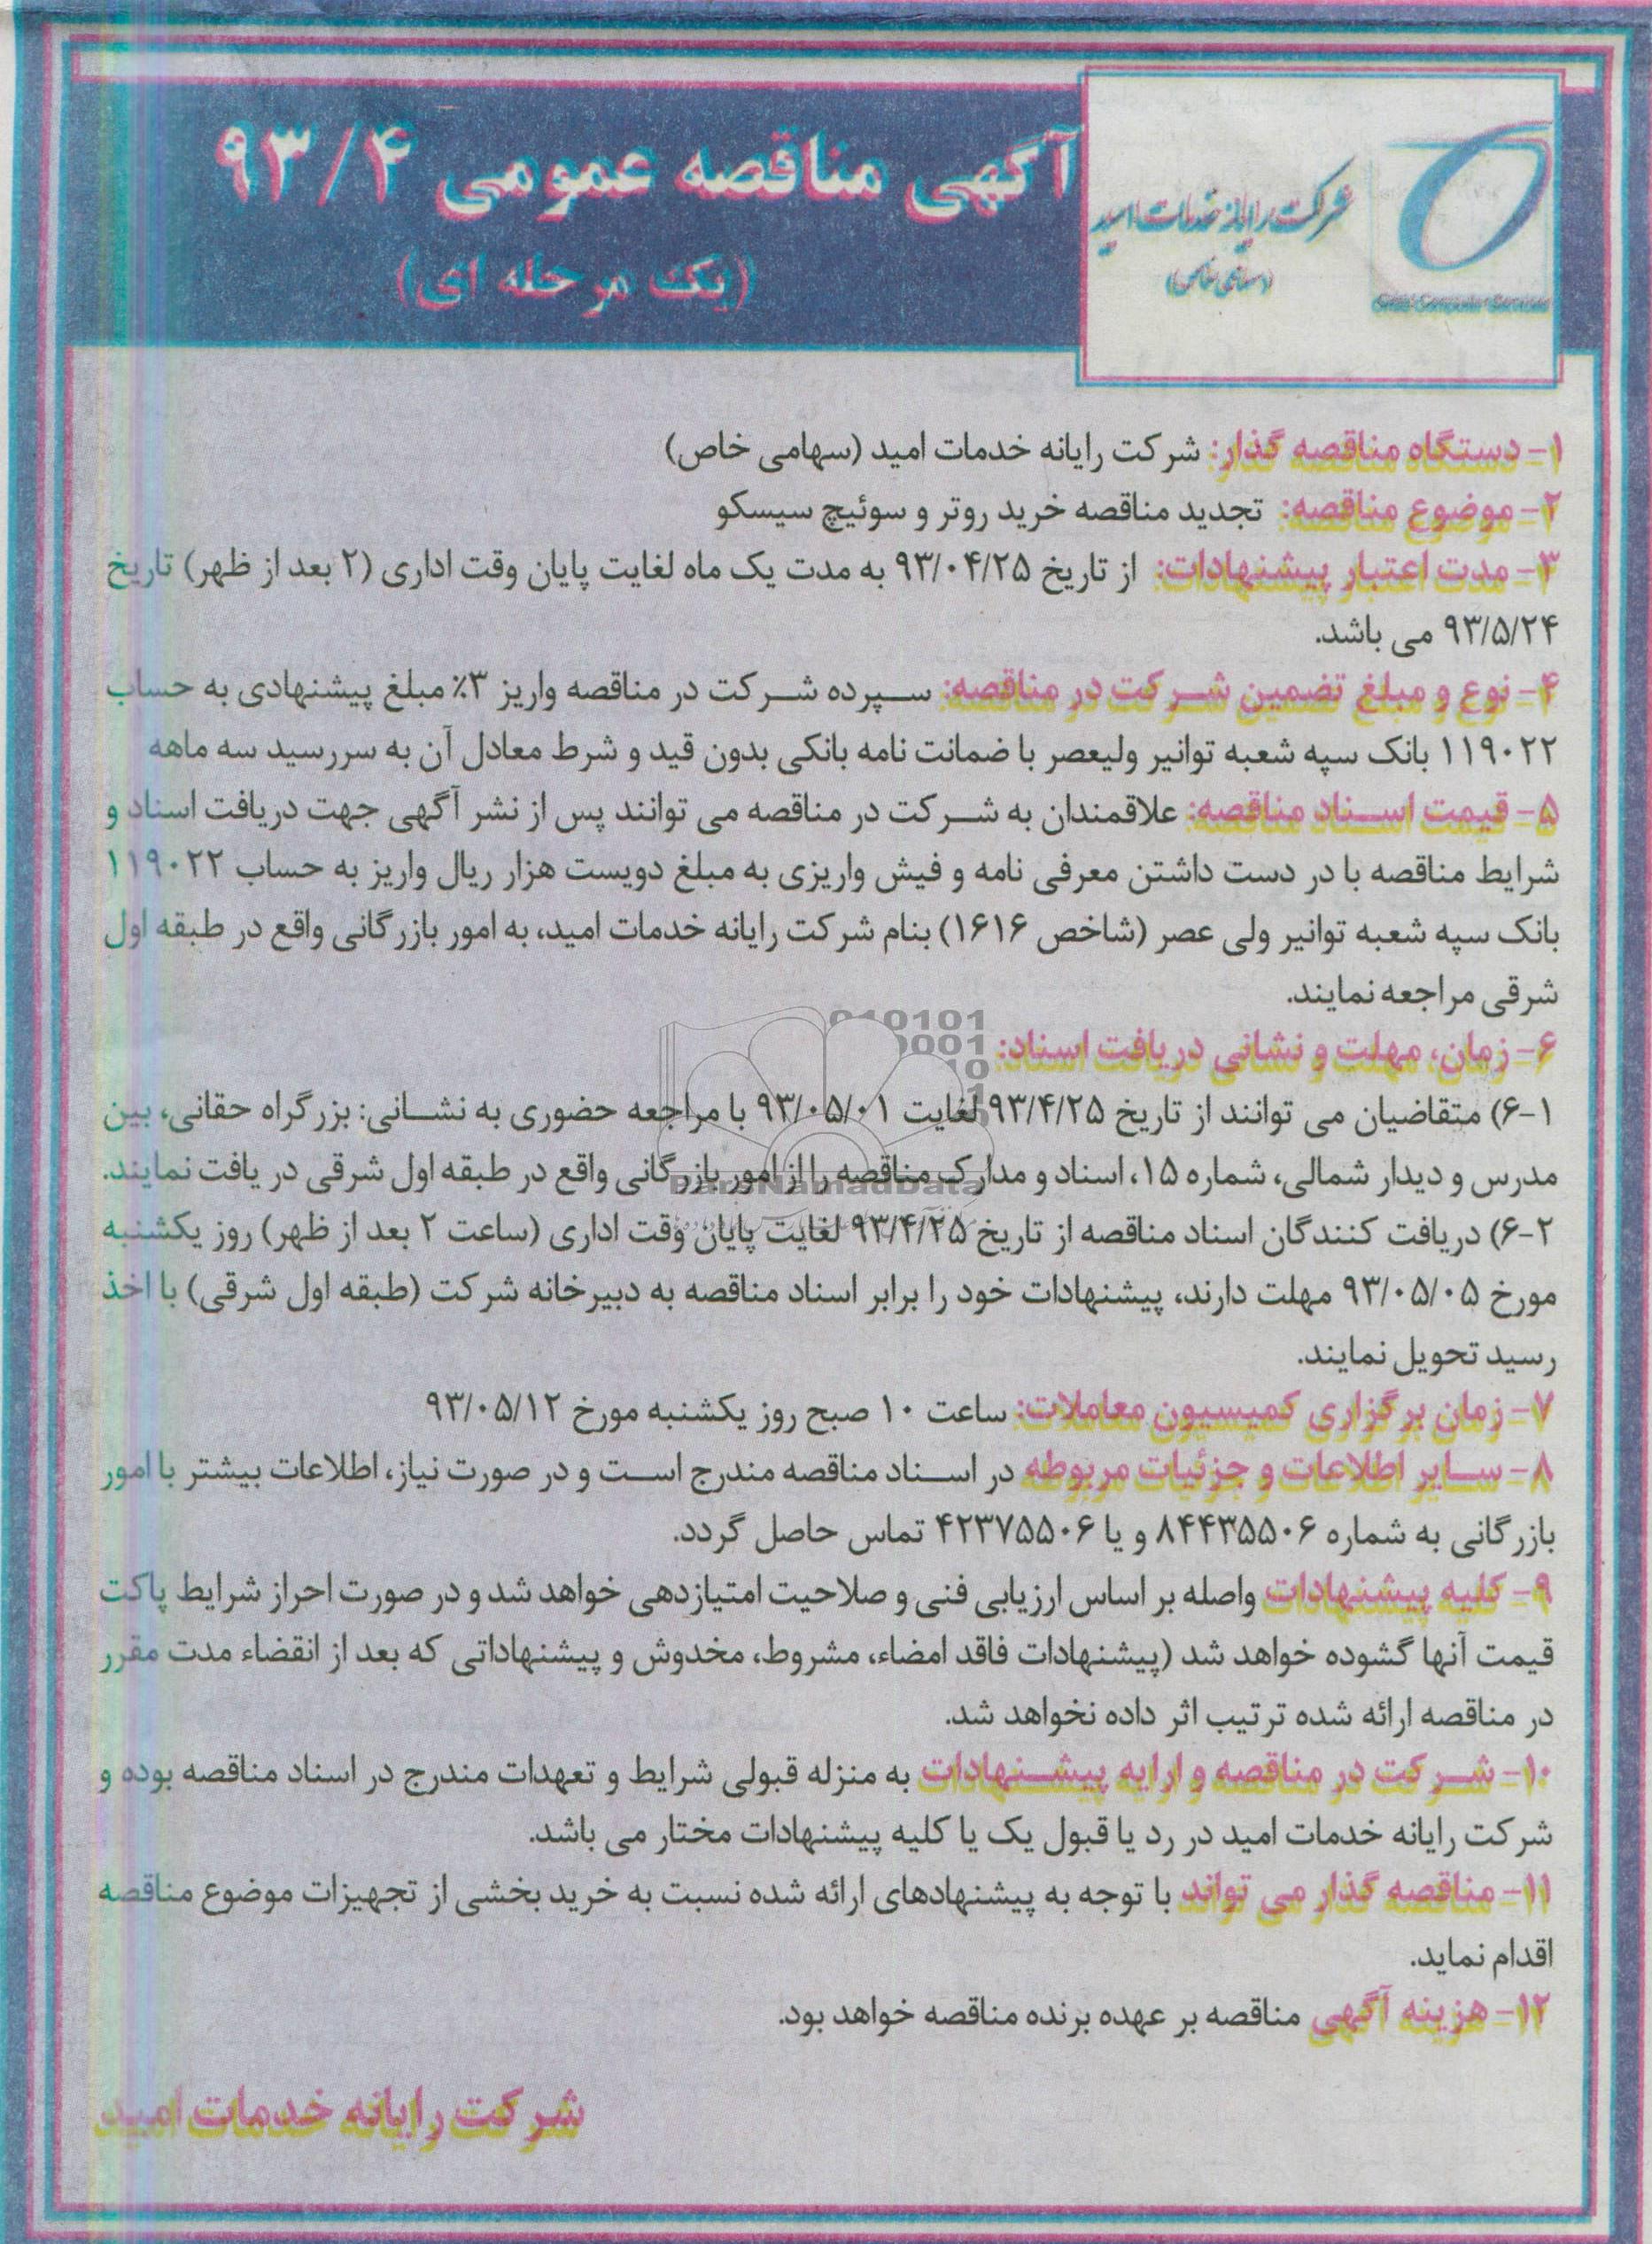 آگهی مناقصه عمومی ۹۳/۴
(یک مرحله ای)
شرکت رایانه خدمات امید
(سهامی خاص)
Omid Computer Services
۱- دستگاه مناقصه گذار: شرکت رایانه خدمات امید (سهامی خاص)
۲- موضوع مناقصه: تجدید مناقصه خرید روتر و سوئیچ سیسکو
۳- مدت اعتبار پیشنهادات: از تاریخ ۹۳/۰۴/۲۵ به مدت یک ماه لغایت پایان وقت اداری (۲ بعد از ظهر) تاریخ
۹۳/۵/۲۴ می باشد.
۴- نوع و مبلغ تضمین شرکت در مناقصه: سپرده شرکت در مناقصه واریز ۳٪ مبلغ پیشنهادی به حساب
۱۱۹۰۲۲ بانک سپه شعبه توانیر ولیعصر با ضمانت نامه بانکی بدون قید و شرط معادل آن به سررسید سه ماهه
۵- قیمت اسناد مناقصه: علاقمندان به شرکت در مناقصه می توانند پس از نشر آگهی جهت دریافت اسناد و
شرایط مناقصه با در دست داشتن معرفی نامه و فیش واریزی به مبلغ دویست هزار ریال واریز به حساب ۱۱۹۰۲۲
بانک سپه شعبه توانیر ولی عصر (شاخص ۱۶۱۶) بنام شرکت رایانه خدمات امید، به امور بازرگانی واقع در طبقه اول
شرقی مراجعه نمایند.
۶- زمان، مهلت و نشانی دریافت اسناد:
۶-۱) متقاضیان می توانند از تاریخ ۹۳/۴/۲۵ لغایت ۹۳/۰۵/۰۱ با مراجعه حضوری به نشانی: بزرگراه حقانی، بین
مدرس و دیدار شمالی، شماره ۱۵، اسناد و مدارک مناقصه را از امور بازرگانی واقع در طبقه اول شرقی در یافت نمایند.
۶-۲) دریافت کنندگان اسناد مناقصه از تاریخ ۹۳/۴/۲۵ لغایت پایان وقت اداری (ساعت ۲ بعد از ظهر) روز یکشنبه
مورخ ۹۳/۰۵/۰۵ مهلت دارند، پیشنهادات خود را برابر اسناد مناقصه به دبیرخانه شرکت (طبقه اول شرقی) با اخذ
رسید تحویل نمایند.
۷- زمان برگزاری کمیسیون معاملات: ساعت ۱۰ صبح روز یکشنبه مورخ ۹۳/۰۵/۱۲
۸- سایر اطلاعات و جزئیات مربوطه در اسناد مناقصه مندرج است و در صورت نیاز، اطلاعات بیشتر با امور
بازرگانی به شماره ۸۴۴۳۵۵۰۶ و یا ۴۲۳۷۵۵۰۶ تماس حاصل گردد.
۹- کلیه پیشنهادات واصله بر اساس ارزیابی فنی و صلاحیت امتیازدهی خواهد شد و در صورت احراز شرایط پاکت
قیمت آنها گشوده خواهد شد (پیشنهادات فاقد امضاء، مشروط، مخدوش و پیشنهاداتی که بعد از انقضاء مدت مقرر
در مناقصه ارائه شده ترتیب اثر داده نخواهد شد.
۱۰- شرکت در مناقصه و ارایه پیشنهادات به منزله قبولی شرایط و تعهدات مندرج در اسناد مناقصه بوده و
شرکت رایانه خدمات امید در رد یا قبول یک یا کلیه پیشنهادات مختار می باشد.
۱۱- مناقصه گذار می تواند با توجه به پیشنهادهای ارائه شده نسبت به خرید بخشی از تجهیزات موضوع مناقصه
اقدام نماید.
۱۲- هزینه آگهی مناقصه بر عهده برنده مناقصه خواهد بود.
شرکت رایانه خدمات امید
ParsNamadData